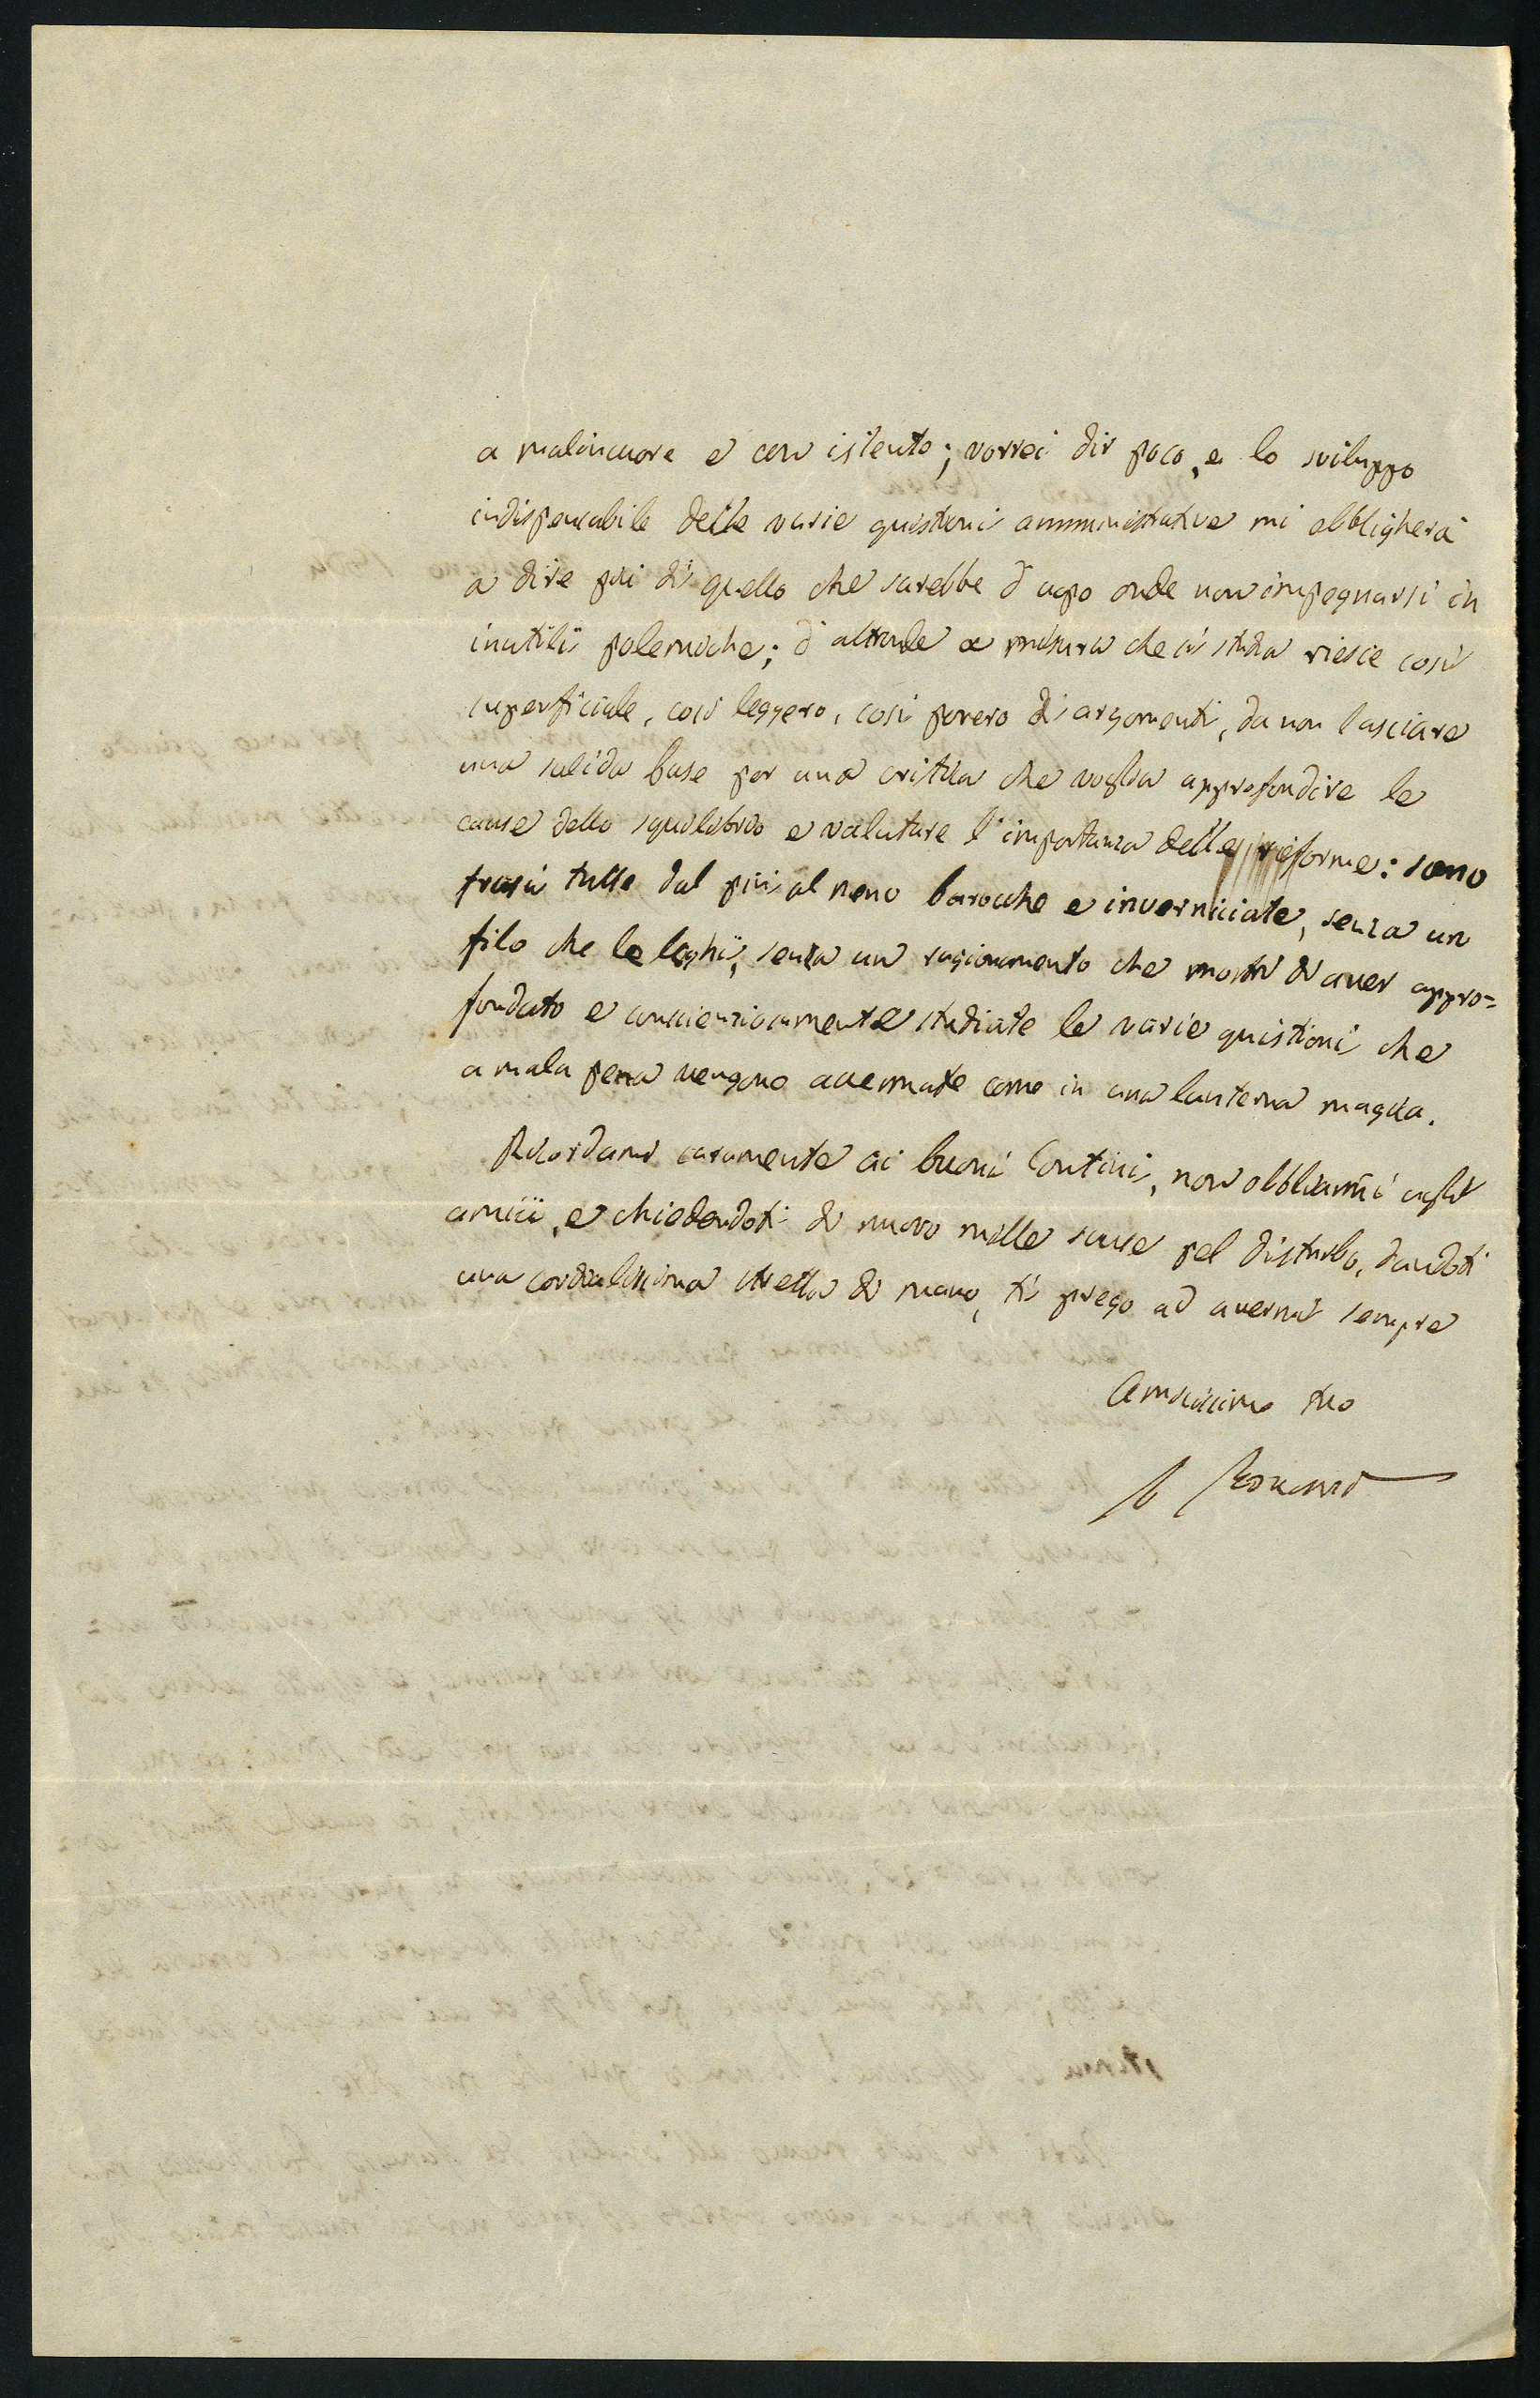 a malincuore e con istento; vorrei dir poco, e lo sviluppo
indispensabile delle varie quistioni amministrative mi obbligherà
a dire più di quello che sarebbe d'uopo onde non impegnarsi in
inutili polemiche; d'altronde a misura che si studia riesce così
superficiale, così leggero, così povero di argomenti, da non lasciare
una solida base per una critica che voglia approfondire le
cause dello squilibrio e valutare l'importanza delle riforme: sono
frasi tutte dal più al meno barocche e inverniciate, senza un
filo che le leghi, senza un ragionamento che mostri di aver appro=
fondato e conscienziosamente studiate le varie quistioni che
a mala pena vengono accennate come in una lanterna magica.
Ricordami caramente ai buoni Contini, non obbliarmi cogli
amici, e chiedendoti di nuovo mille scuse pel disturbo, dandoti
una cordialissima stretta di mano, ti prego ad avermi sempre
Amicissimo tuo